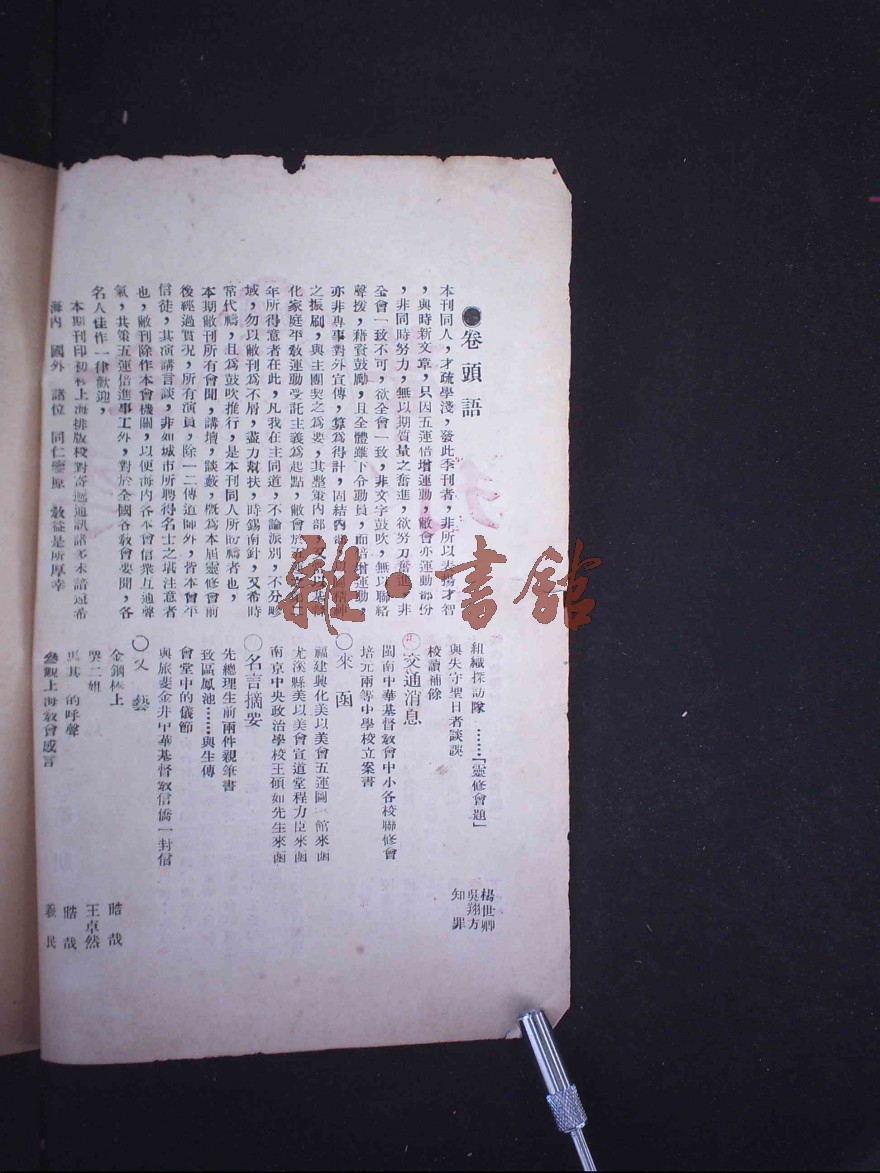 ●卷頭語
本刊同人,才疏學淺,發此季刊者,非所以表揚才智
,與時新文章,只因五運倍增運動,敝會亦運動部份
,非同時努力,無以期質量之奮進,欲努力奮進,非
全會一致不可,欲全會一致,非文字鼓吹,無以聯絡
聲援,藉資鼓勵,且全體雖下令動員,而倍增運動
亦非專事對外宣傳,算爲得計,固結內
之振刷,與主團契之爲要,其整策內部
化家庭平敎運動受託主義爲起點,敝會於
年所得意者在此,凡我在主同道,不論派別,不分畛
域,勿以敝刊爲不屑,盡力幫扶,時錫南針,又希時
常代禱,且爲鼓吹推行,是本刊同人所盼禱者也,
本期敝刊所有會聞,講壇,談藪,概爲本屆靈修會前
後經過實况,所有演員,除一二傳道師外,皆本會平
信徒,其演講言談,非如城市所聘得名士之堪注意者
也,敝刊除作本會機關,以便海內各本會信衆互通聲
氣,共策五運倍進事工外,對於全國各敎會要聞,各
名人佳作一律歡迎,
本期刊印初稿上海排版校對寄遞通訊諸多未諳還希
海內 國外 諸位 同仁 原 敎益是所厚幸
組織探訪隊 ……「靈修會題」 楊世卿
與失守聖日者談談 吳翔方
校讀補餘 知罪
○交通消息
閩南中華基督敎會中小各校聯修會
培元兩等中學校立案書
○來函
福建興化美以美會五運圖書館來函
尤溪縣美以美會宣道堂程力臣來函
南京中央政治學校王碩如先生來函
○名言摘要
先總理生前兩件親筆書
致區鳳池……與生傳
會堂中的儀節
與旅斐金井中華基督敎信僑一封信
○文藝
金鋼橋上 晧哉
哭二姐 王卓然
馬其 的呼聲 晧哉
參觀上海敎會感言 義民
雜·書館